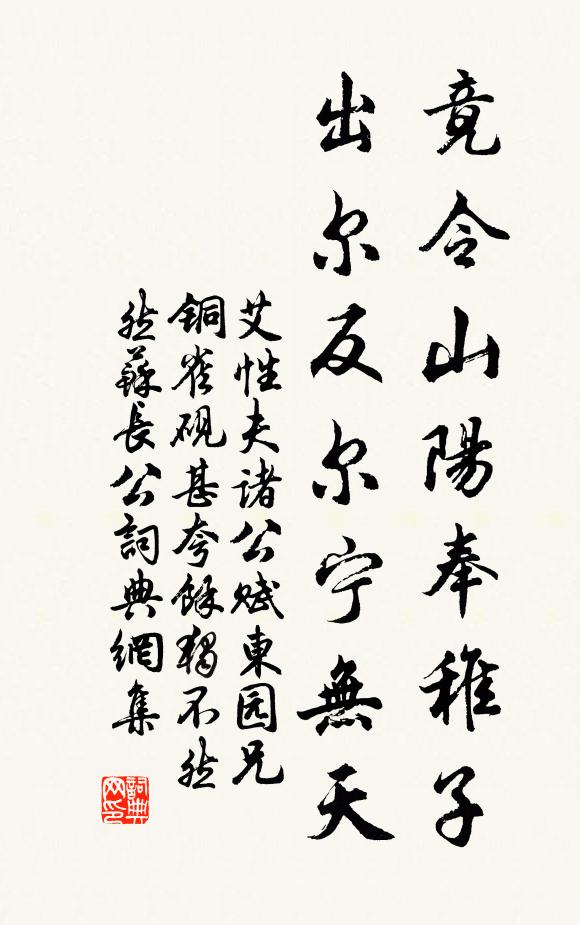 竟令山陽奉稚子
出尔反尔宁無天
艾性夫諸公賦東园兄
銅雀硯甚夸餘獨不然
然蘇長公詞典網集
詞典网印